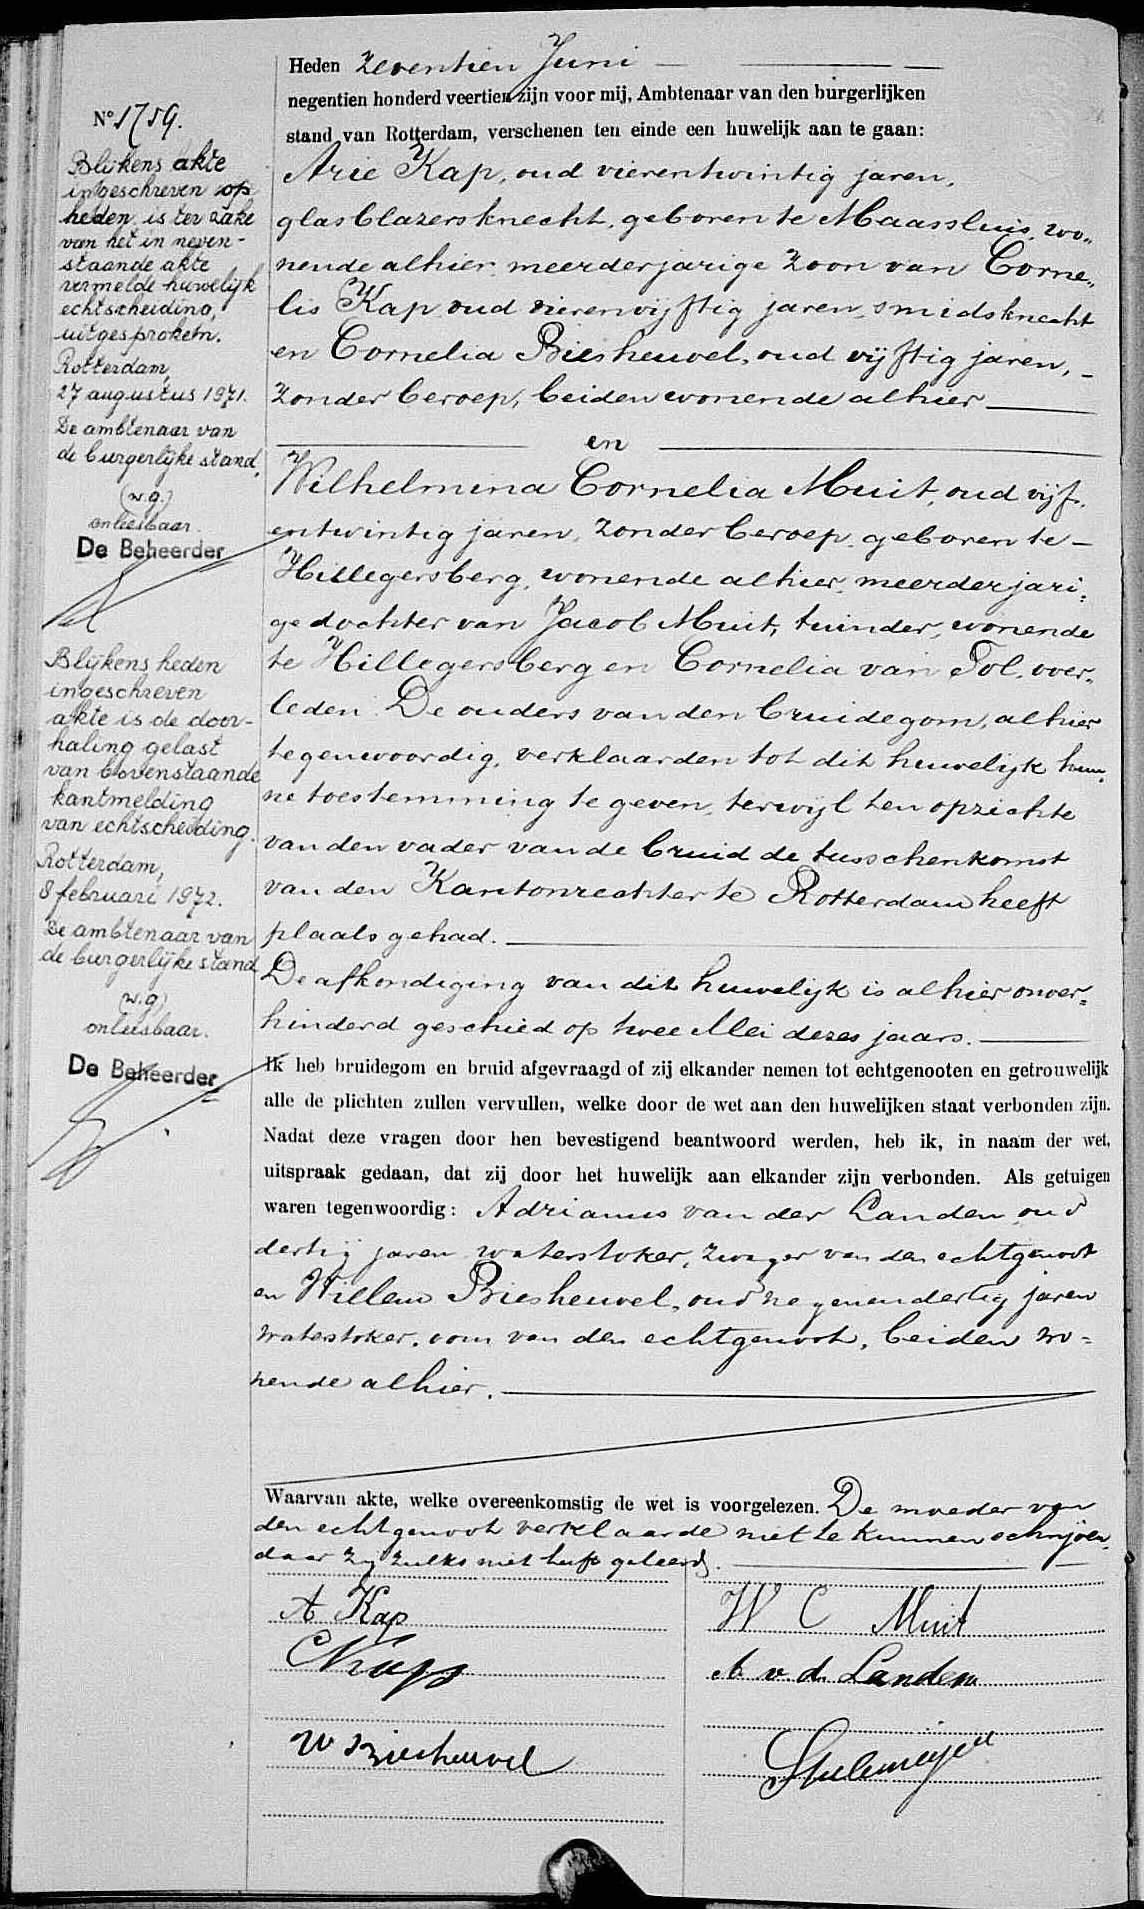 Heden zeventien Juni
negentien honderd veertien zijn voor mij, Ambtenaar van den burgerlijken
stand van Rotterdam, verschenen ten einde een huwelijk aan te gaan:
Arie Kap, oud vierentwintig jaren,
glasblazersknecht, geboren te Maassluis, wo„
nende alhier, meerderjarige zoon van Corne„
lis Kap oud vierenvijftig jaren, smidsknecht
en Cornelia Biesheuvel, oud vijftig jaren,
zonder beroep, beiden wonende alhier
en
Wilhelmina Cornelia Muit, oud vijf„
entwintig jaren, zonder beroep, geboren te
Hillegersberg, wonende alhier, meerderjari„
ge dochter van Jacob Muit, tuinder, wonende
te Hillegersberg en Cornelia van Tol, over„
leden. De ouders van den bruidegom, alhier
tegenwoordig, verklaarden tot dit huwelijk hun„
ne toestemming te geven, terwijl ten opzichte
van den vader van de bruid de tusschenkomst
van den Kantonrechter te Rotterdam heeft
plaats gehad.
De afkondiging van dit huwelijk is alhier onver„
hinderd geschied op twee Mei dezes jaars.
Ik heb bruidegom en bruid afgevraagd of zij elkander nemen tot echtgenooten en getrouwelijk
alle de plichten zullen vervullen, welke door de wet aan den huwelijken staat verbonden zijn.
Nadat deze vragen door hen bevestigend beantwoord werden, heb ik, in naam der wet,
uitspraak gedaan, dat zij door het huwelijk aan elkander zijn verbonden. Als getuigen
waren tegenwoordig: Adrianus van der Landen oud
dertig jaren waterstoker, zwager van den echtgenoot
en Willem Biesheuvel, oud negenendertig jaren
waterstoker, oom van den echtgenoot, beiden wo=
nende alhier.
Waarvan akte, welke overeenkomstig de wet is voorgelezen. De moeder van
den echtgenoot verklaarde niet te kunnen schrijven,
daar zij zulks niet heeft geleerd.
A Kap
W C Muit
C Kap
A v. d. Landen
W Biesheuvel
No 1759.
Blijkens akte
ingeschreven op
heden is ter zake
van het in neven-
staande akte
vermelde huwelijk
echtscheiding,
uitgesproken.
Rotterdam,
27 augustus 1971.
De ambtenaar van
de burgerlijke stand,
(w.g.)
onleesbaar.
De Beheerder
Blijkens heden
ingeschreven
akte is de door-
haling gelast
van bovenstaande
kantmelding
van echtscheiding.
Rotterdam,
8 februari 1972.
De ambtenaar van
de burgerlijke stand
w.g)
onleesbaar.
De Beheerder